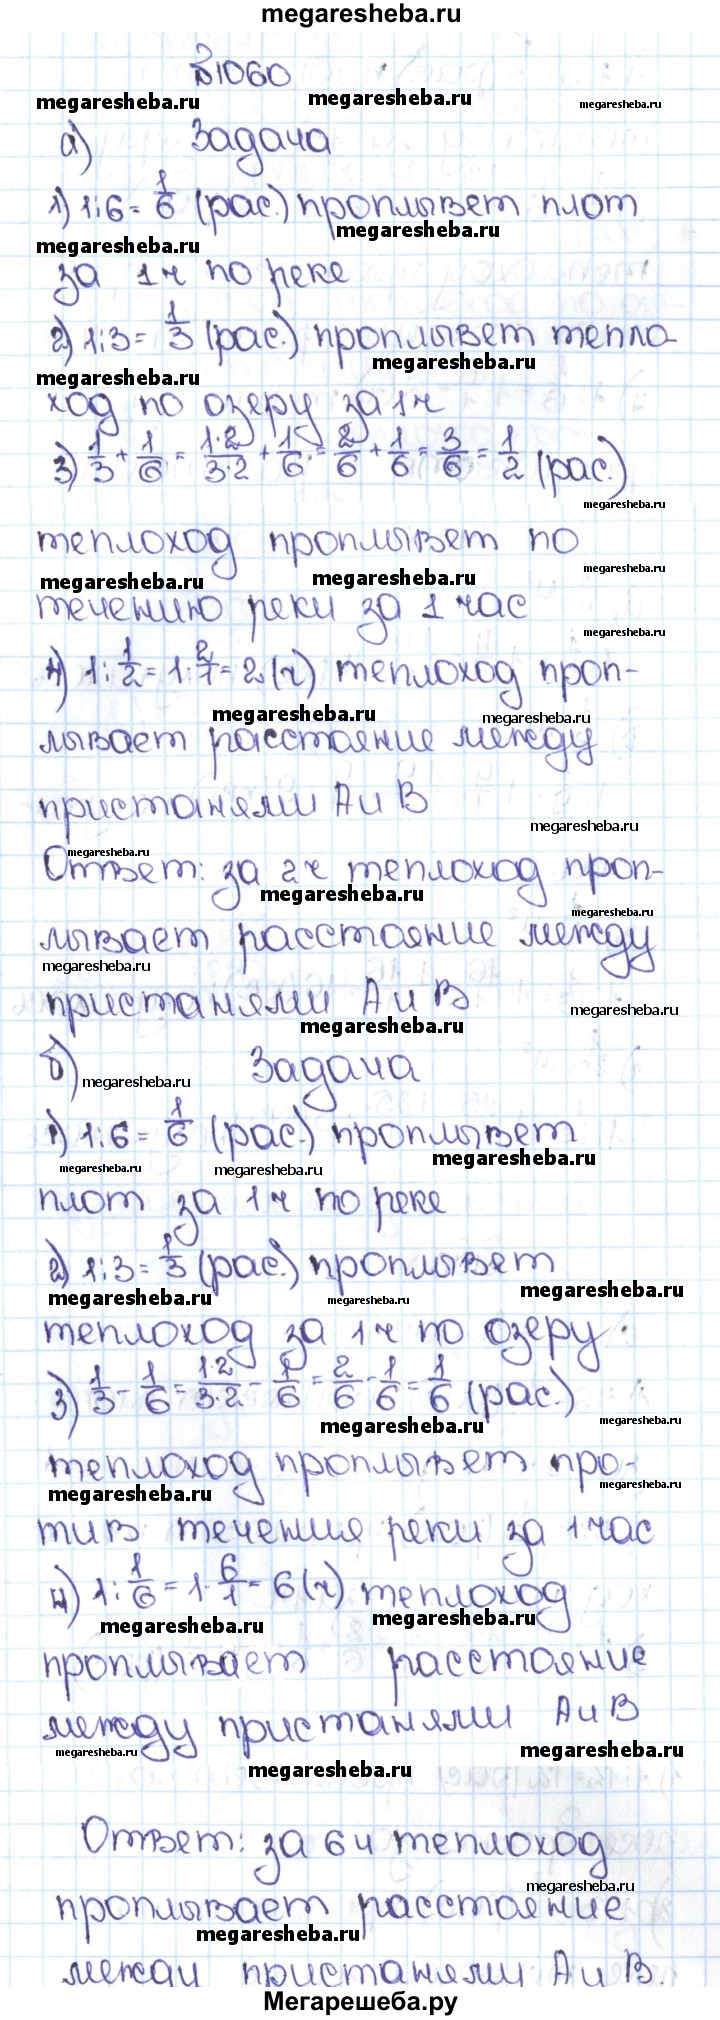 megaresheba.ru
№1060
megaresheba.ru megaresheba.ru megaresheba.ru
а) Задача
1) 1:6=1/6 (рас.) проплывет плот
megaresheba.ru megaresheba.ru
за 1ч по реке
2) 1:3=1/3 (рас.) проплывет тепла-
megaresheba.ru megaresheba.ru
ход по озеру за 1ч
3) 1/3+1/6=1·2/3·2+1/6=2/6+1/6=3/6=1/2 (рас.)
megaresheba.ru
теплоход проплывет по
megaresheba.ru megaresheba.ru megaresheba.ru
течению реки за 1 час
megaresheba.ru
4) 1:1/2=1·2/1=2(ч) теплоход проп-
megaresheba.ru megaresheba.ru
лывает расстояние между
пристанями А и В
megaresheba.ru
megaresheba.ru
Ответ: за 2ч теплоход проп-
megaresheba.ru megaresheba.ru
лывает расстояние между
megaresheba.ru
пристанями А и В
megaresheba.ru megaresheba.ru
б) Задача
megaresheba.ru
1) 1:6=1/6 (рас.) проплывет
megaresheba.ru megaresheba.ru megaresheba.ru
плот за 1ч по реке
2) 1:3=1/3 (рас.) проплывет
megaresheba.ru megaresheba.ru megaresheba.ru
теплоход за 1ч по озеру
3) 1/3-1/6=1·2/3·2-1/6=2/6-1/6=1/6 (рас.)
megaresheba.ru megaresheba.ru
теплоход проплывет про-
megaresheba.ru megaresheba.ru
тив течения реки за 1 час
4) 1:1/6=1·6/1=6(ч) теплоход
megaresheba.ru megaresheba.ru
проплывает расстояние
между пристанями А и В
megaresheba.ru megaresheba.ru megaresheba.ru
Ответ: за 6ч теплоход
megaresheba.ru
проплывает расстояние
megaresheba.ru
между пристанями А и В.
Мегарешеба.ру